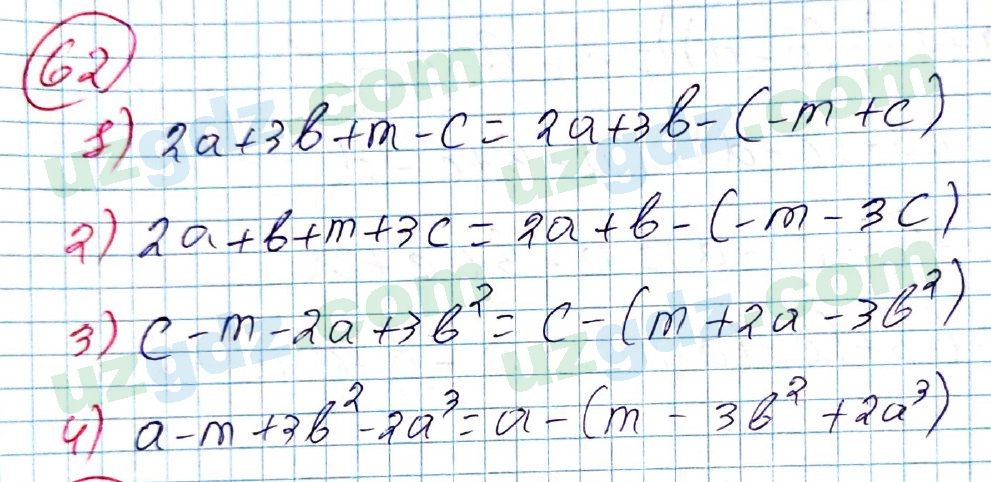 62
1) 2a+3b+m-c= 2a+3b-(-m+c)
2) 2a+b+m+3c=2a+b-(-m-3c)
3) c-m-2a+3b²=c-(m+2a-3b²)
4) a-m+3b²-2a³=a-(m-3b²+2a³)
uzgdz.com
uzgdz.com
uzgdz.com
uzgdz.com